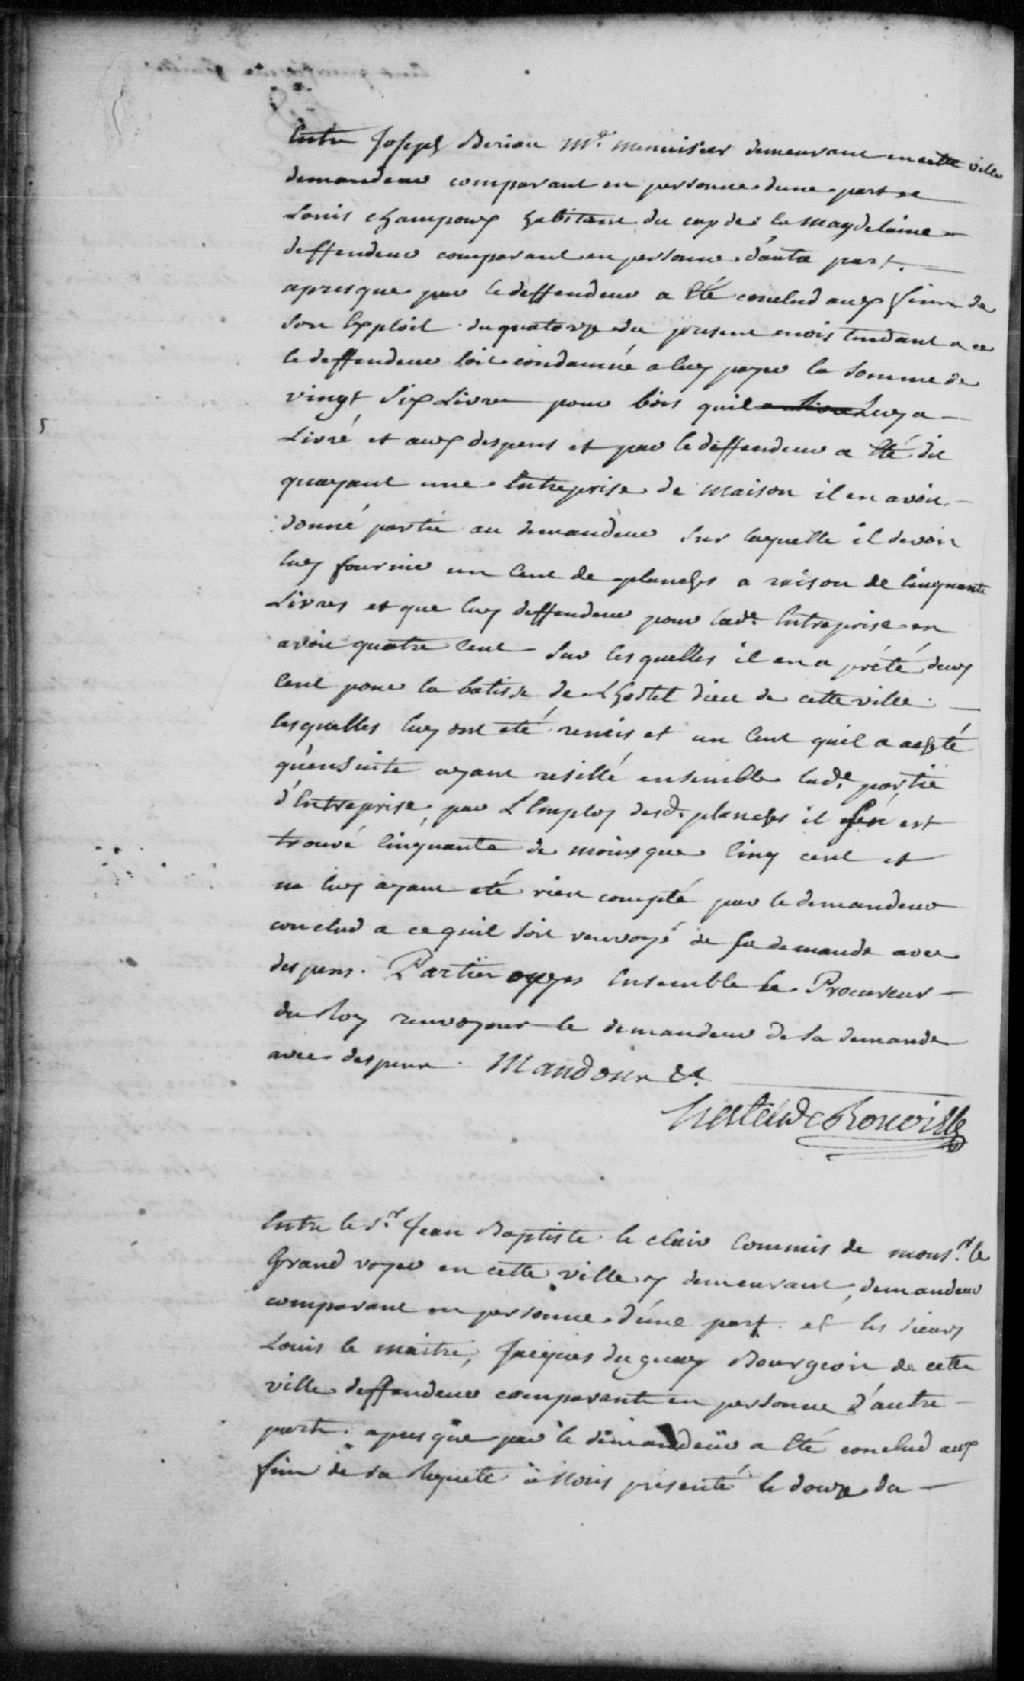 Entre Joseph Berion Me. menuisier demeurant en cette ville
demandeur comparant en personne dune part et
Louis champoux habitant du cap de la Magdelaine
deffendeur comparant en personne d'autre part.
apres que par le deffendeur a été conclud aux fins de
son Exploit du quatorze du present mois tendant a ce
le deffendeur soit condamné a luy payer la somme de
vingt six Livres pour bois quil luy a
Livré et aux despens et par le deffendeur a été dit
quayant une Entreprise de maison il en avoit
donné partie au demandeur sur laquelle il devoit
luy fournir un cent de planches a raison de cinquante
Livres et que luy deffendeur pour lade. Entreprise en
avoit quatre cent sur lesquelles il en a prété deux
cent pour la batisse de Lhostel dieu de cette ville
lesquelles luy ont eté remis et un cent quil a acheté
qu'ensuite ayant resillé ensemble lade. partie
d'Entreprise, par L'Employ desd. planches il s'en est
trouvé cinquante de moins que cinq cent et
ne luy ayant eté rien compté par le demandeur
conclud a ce quil soit renvoyé de sa demande avec
despens. Parties oyes Ensemble le Procureur
du Roy renvoyons le demandeur de sa demande
avec despens. Mandons &a.
hertel de Rouville
Entre le Sr. Jean Baptiste le clair Commis de monsr. le
Grand voyer en cette ville y demeurant, demandeur
comparant en personne d'une part. et les sieurs
Louis le maitre, Jacques duguay Bourgeois de cette
ville deffendeur comparants en personne d'autre
part. apres que par le demandeur a été conclud aux
fins de sa Requete a Nous presenté le douze du